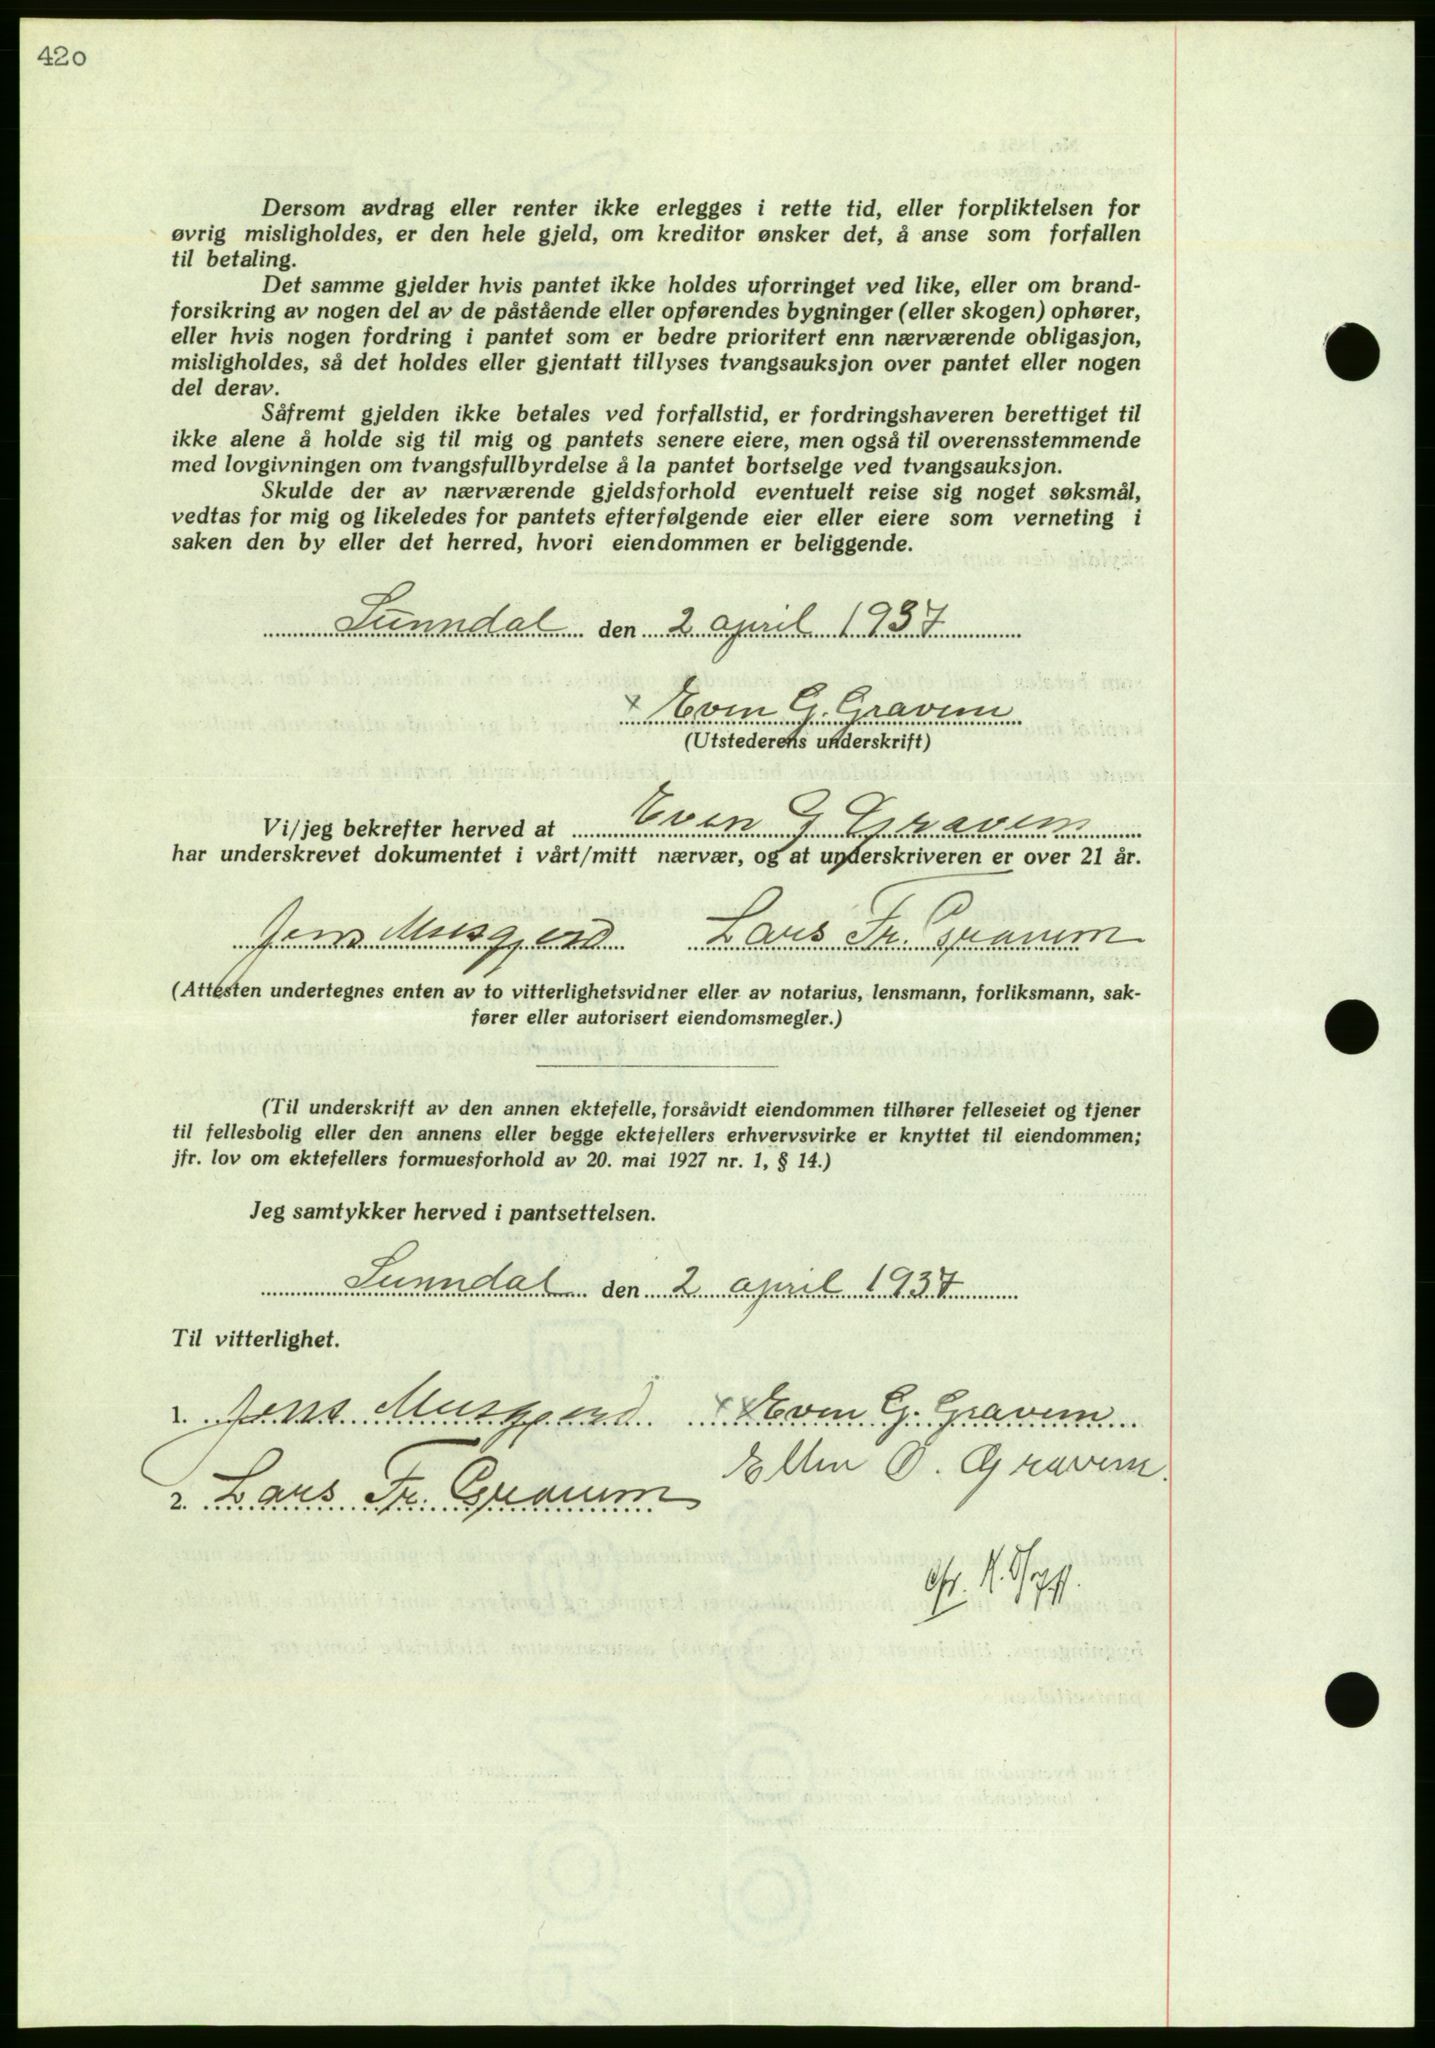 420
Dersom avdrag eller renter ikke erlegges i rette tid, eller forpliktelsen for
øvrig misligholdes, er den hele gjeld, om kreditor ønsker det, å anse som forfallen
til betaling.
Det samme gjelder hvis pantet ikke holdes uforringet ved like, eller om brand-
forsikring av nogen del av de påstående eller opførendes bygninger (eller skogen) ophører,
eller hvis nogen fordring i pantet som er bedre prioritert enn nærværende obligasjon,
misligholdes, så det holdes eller gjentatt tillyses tvangsauksjon over pantet eller nogen
del derav.
Såfremt gjelden ikke betales ved forfallstid, er fordringshaveren berettiget til
ikke alene å holde sig til mig og pantets senere eiere, men også til overensstemmende
med lovgivningen om tvangsfullbyrdelse å la pantet bortselge ved tvangsauksjon.
Skulde der av nærværende gjeldsforhold eventuelt reise sig noget søksmål,
vedtas for mig og likeledes for pantets efterfølgende eier eller eiere som verneting i
saken den by eller det herred, hvori eiendommen er beliggende.
Sunndal den 2 april 1937
x Even G. Gravem
(Utstederens underskrift)
Vi/jeg bekrefter herved at Even G Gravem
har underskrevet dokumentet i vårt/mitt nærvær, og at underskriveren er over 21 år.
Jens Musgjerd Lars Fr. Gravem
(Attesten undertegnes enten av to vitterlighetsvidner eller av notarius, lensmann, forliksmann, sak-
fører eller autorisert eiendomsmegler.)
(Til underskrift av den annen ektefelle, forsåvidt eiendommen tilhører felleseiet og tjener
til fellesbolig eller den annens eller begge ektefellers erhvervsvirke er knyttet til eiendommen;
jfr. lov om ektefellers formuesforhold av 20. mai 1927 nr. 1, § 14.)
Jeg samtykker herved i pantsettelsen.
Sunndal den 2 april 1937
Til vitterlighet.
1. Jens Musgjerd x x Even G. Gravem
Ellen O. Gravem.
2. Lars Fr. Gravem